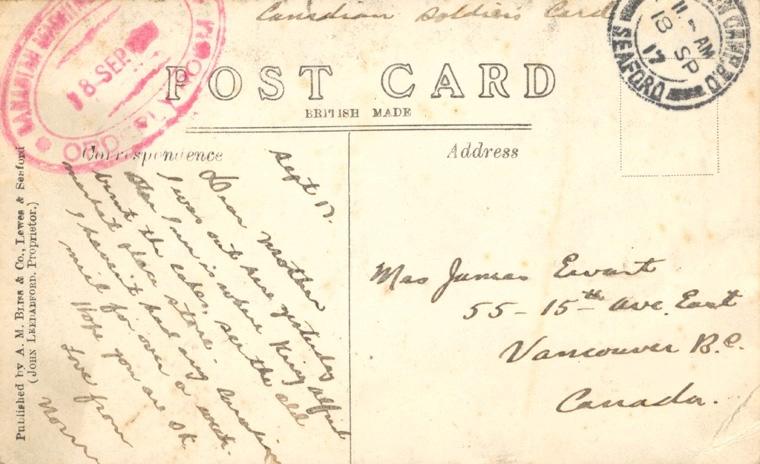 Canadian Soldiers Card
18 SEP
11. AM
18 SP
17
SEAFORD
CAMP P.O.
POST CARD
BRITISH MADE
Correspondence
Address
Sept 17.
Dear Mother
I was out here yesterday
the Inn is where King Alfred
burnt the cakes, see the old
market place store.
I haven't had any Canadian
mail for over a week.
Hope you are ok.
Love from
Norm
Mrs James Ewart
55-15th Ave. East
Vancouver B.C.
Canada.
Published by A. M. Bliss & Co., Lewes & Seaford
(John Leedabford, Proprietor.)